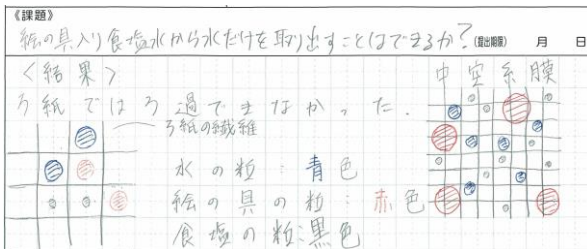 《課題》
絵の具入り食塩水から水だけを取り出すことはできるか?(提出期限) 月 日
<結果>
ろ紙ではろ過できなかった.
中空糸膜
ろ紙の繊維
水の粒:青色
絵の具の粒:赤色
食塩の粒:黒色